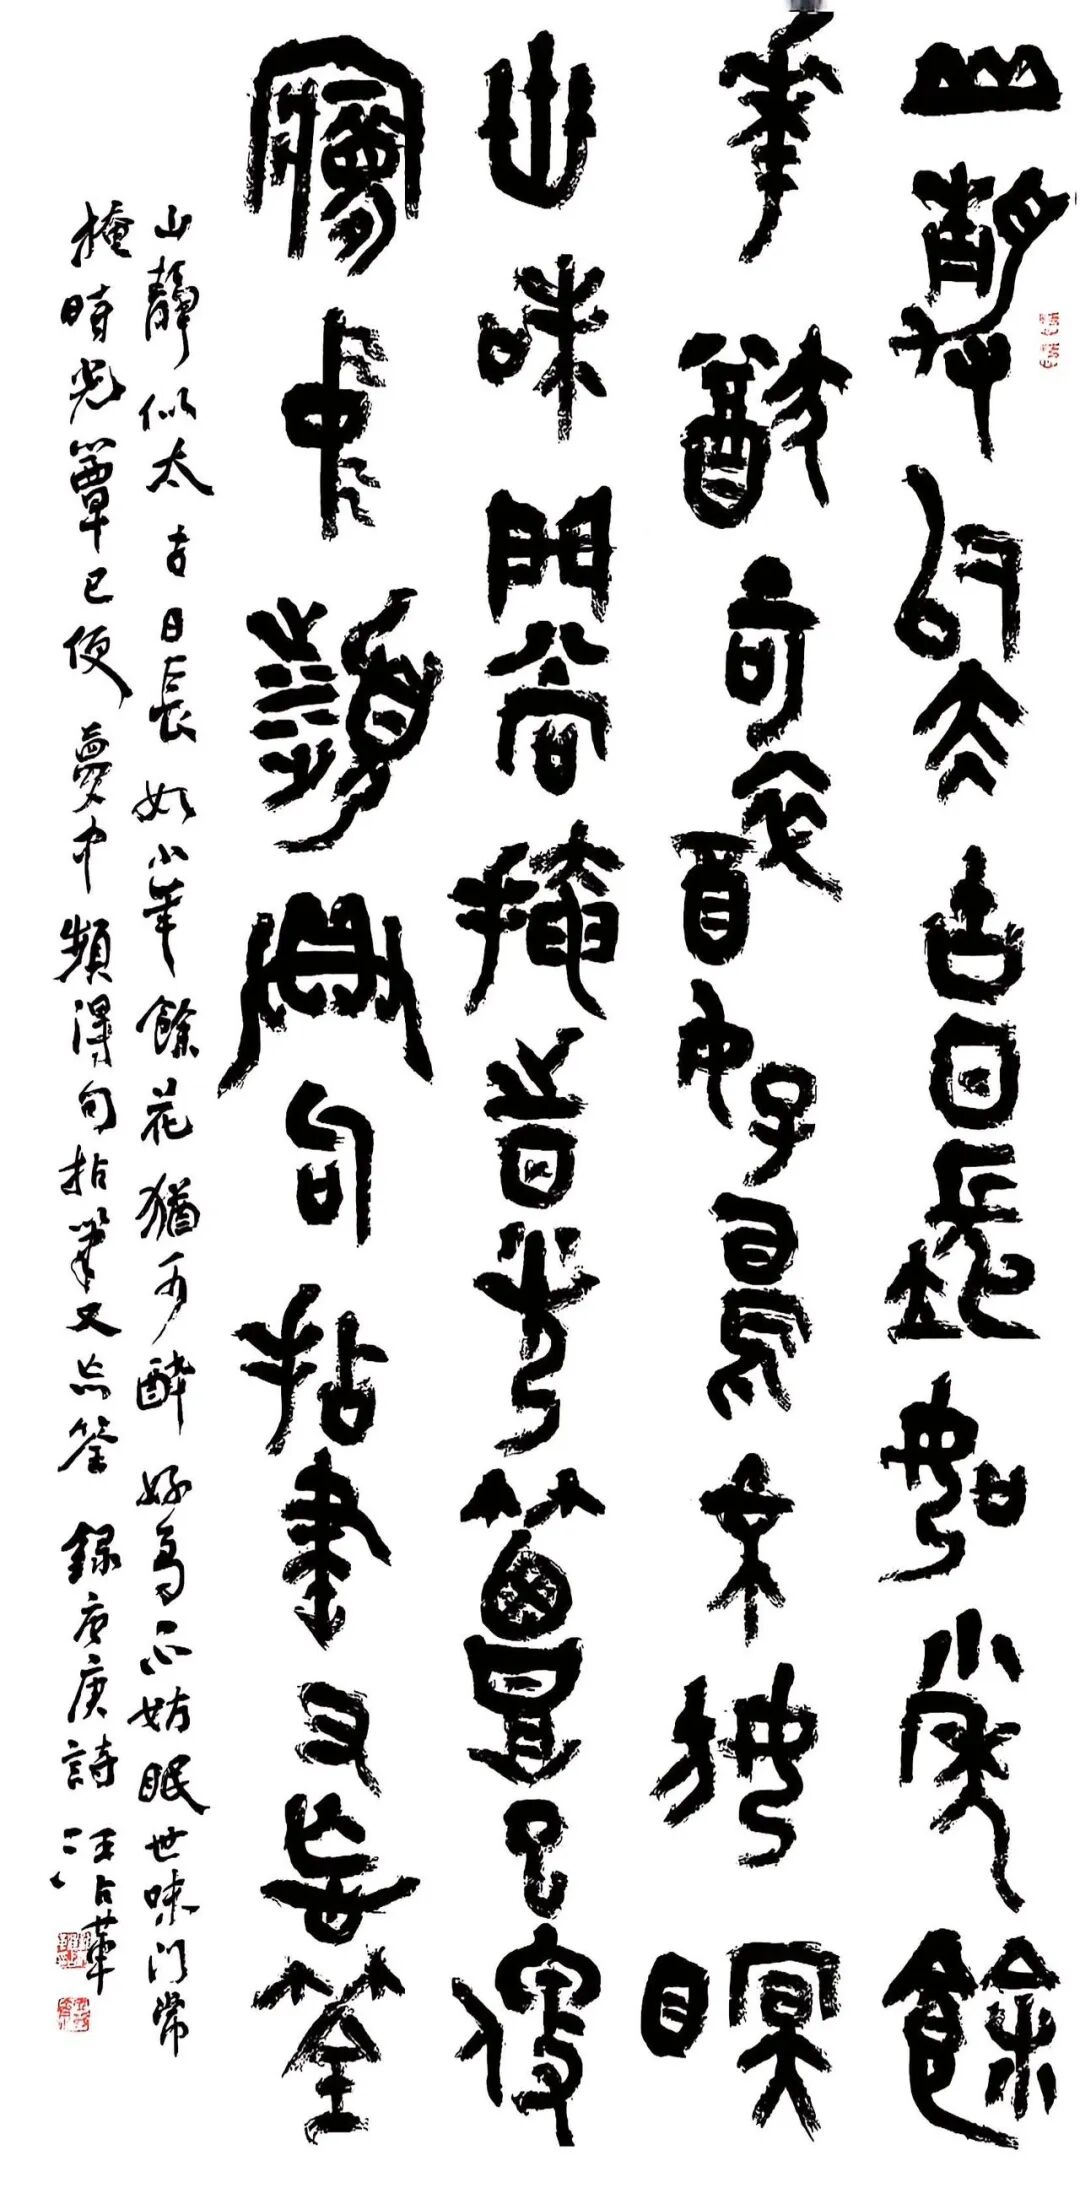 山靜似太古日長如小年餘
華猶可醉好鳥不妨瞑
世味門常掩時光簟已便
夢中頻得句拈筆又忘筌
山靜似太古日長如小年餘花猶可醉好鳥不妨眠世味門常
掩時光簟已便夢中頻得句拈筆又忘筌 錄唐庚詩 汪占革